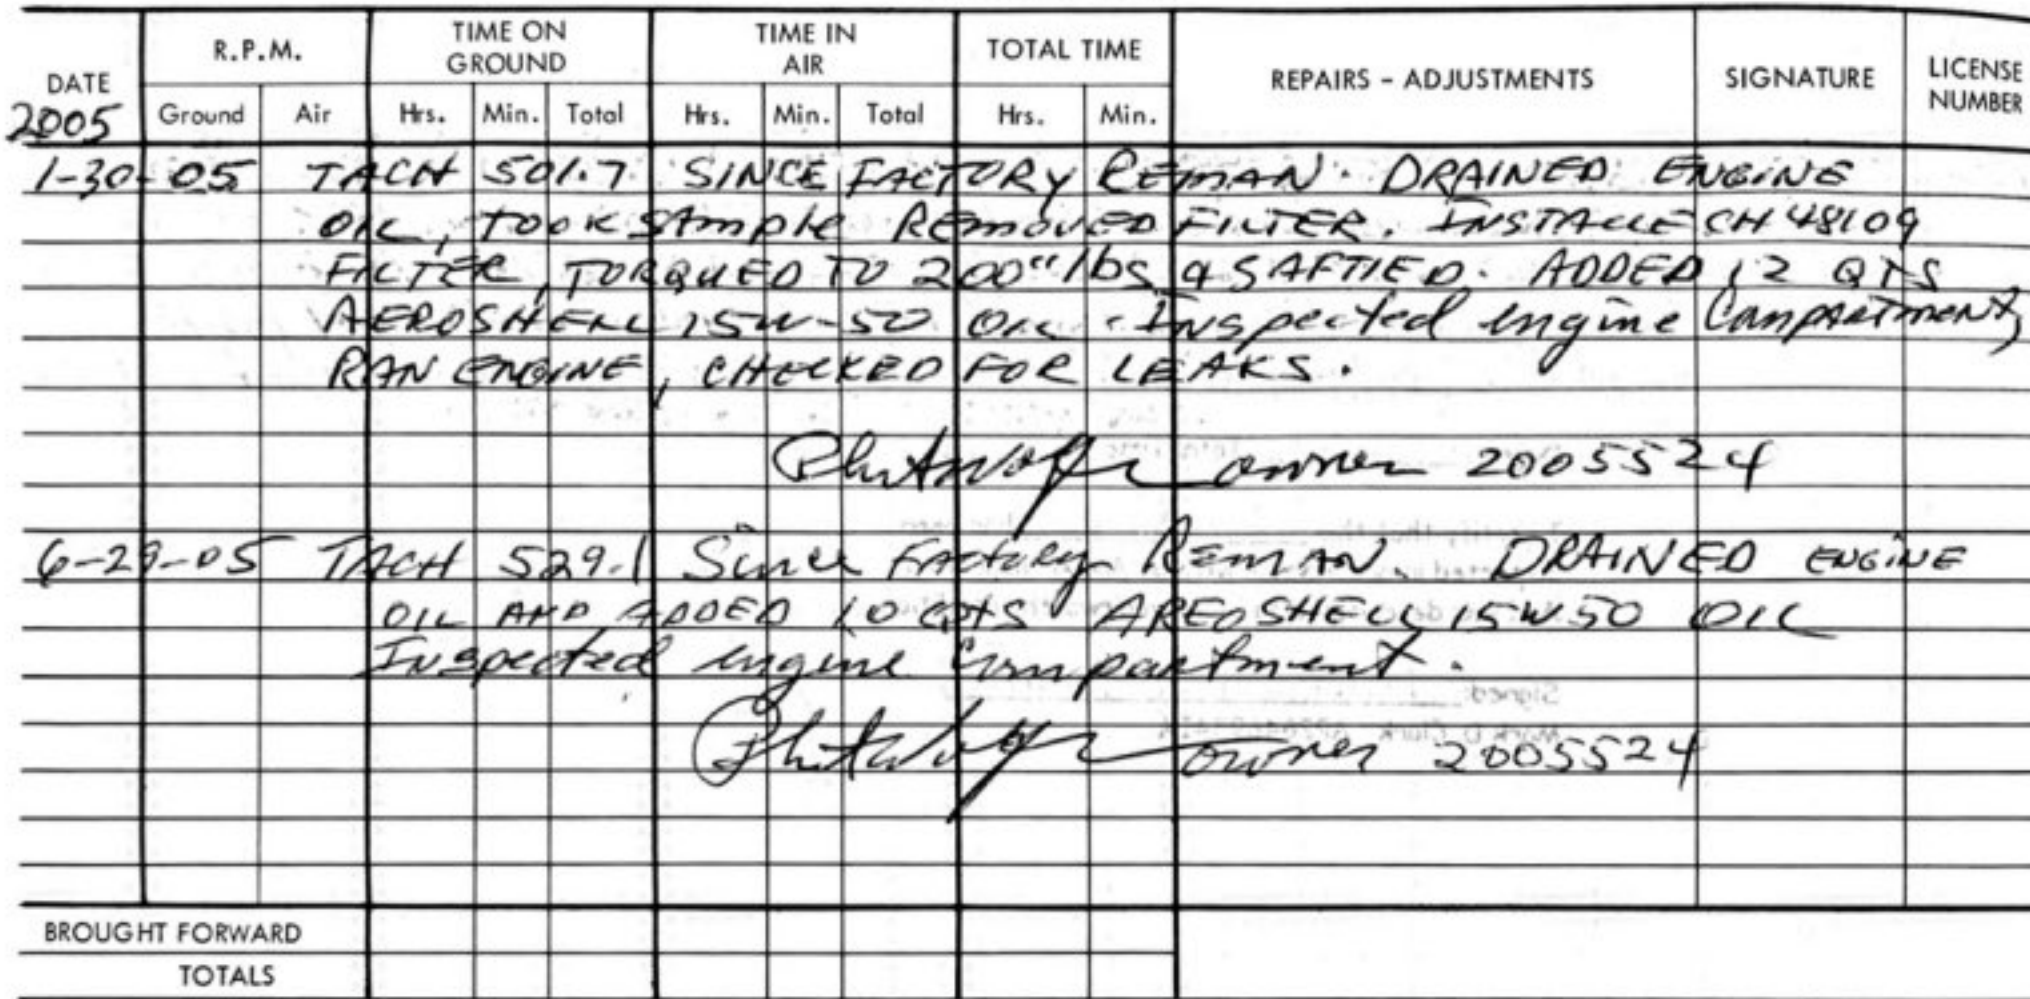 DATE R.P.M. TIME ON GROUND TIME IN AIR TOTAL TIME REPAIRS - ADJUSTMENTS SIGNATURE LICENSE NUMBER
2005 Ground Air Hrs. Min. Total Hrs. Min. Total Hrs. Min.
1-30-05 TACH 501.7 SINCE FACTORY REMAN. DRAINED ENGINE
OIL, TOOK SAMPLE REMOVED FILTER. INSTALLE CH 48109
FILTER, TORQUED TO 200" lbs & SAFTIED. ADDED 12 QTS
AEROSHELL 15W-50 OIL. Inspected engine Compartment,
RAN ENGINE, CHECKED FOR LEAKS.
owner 2005524
6-29-05 TACH 529.1 Since Factory REMAN. DRAINED ENGINE
OIL AND ADDED 10 QTS AREOSHELL 15W50 OIL
Inspected engine Compartment.
owner 2005524
BROUGHT FORWARD
TOTALS